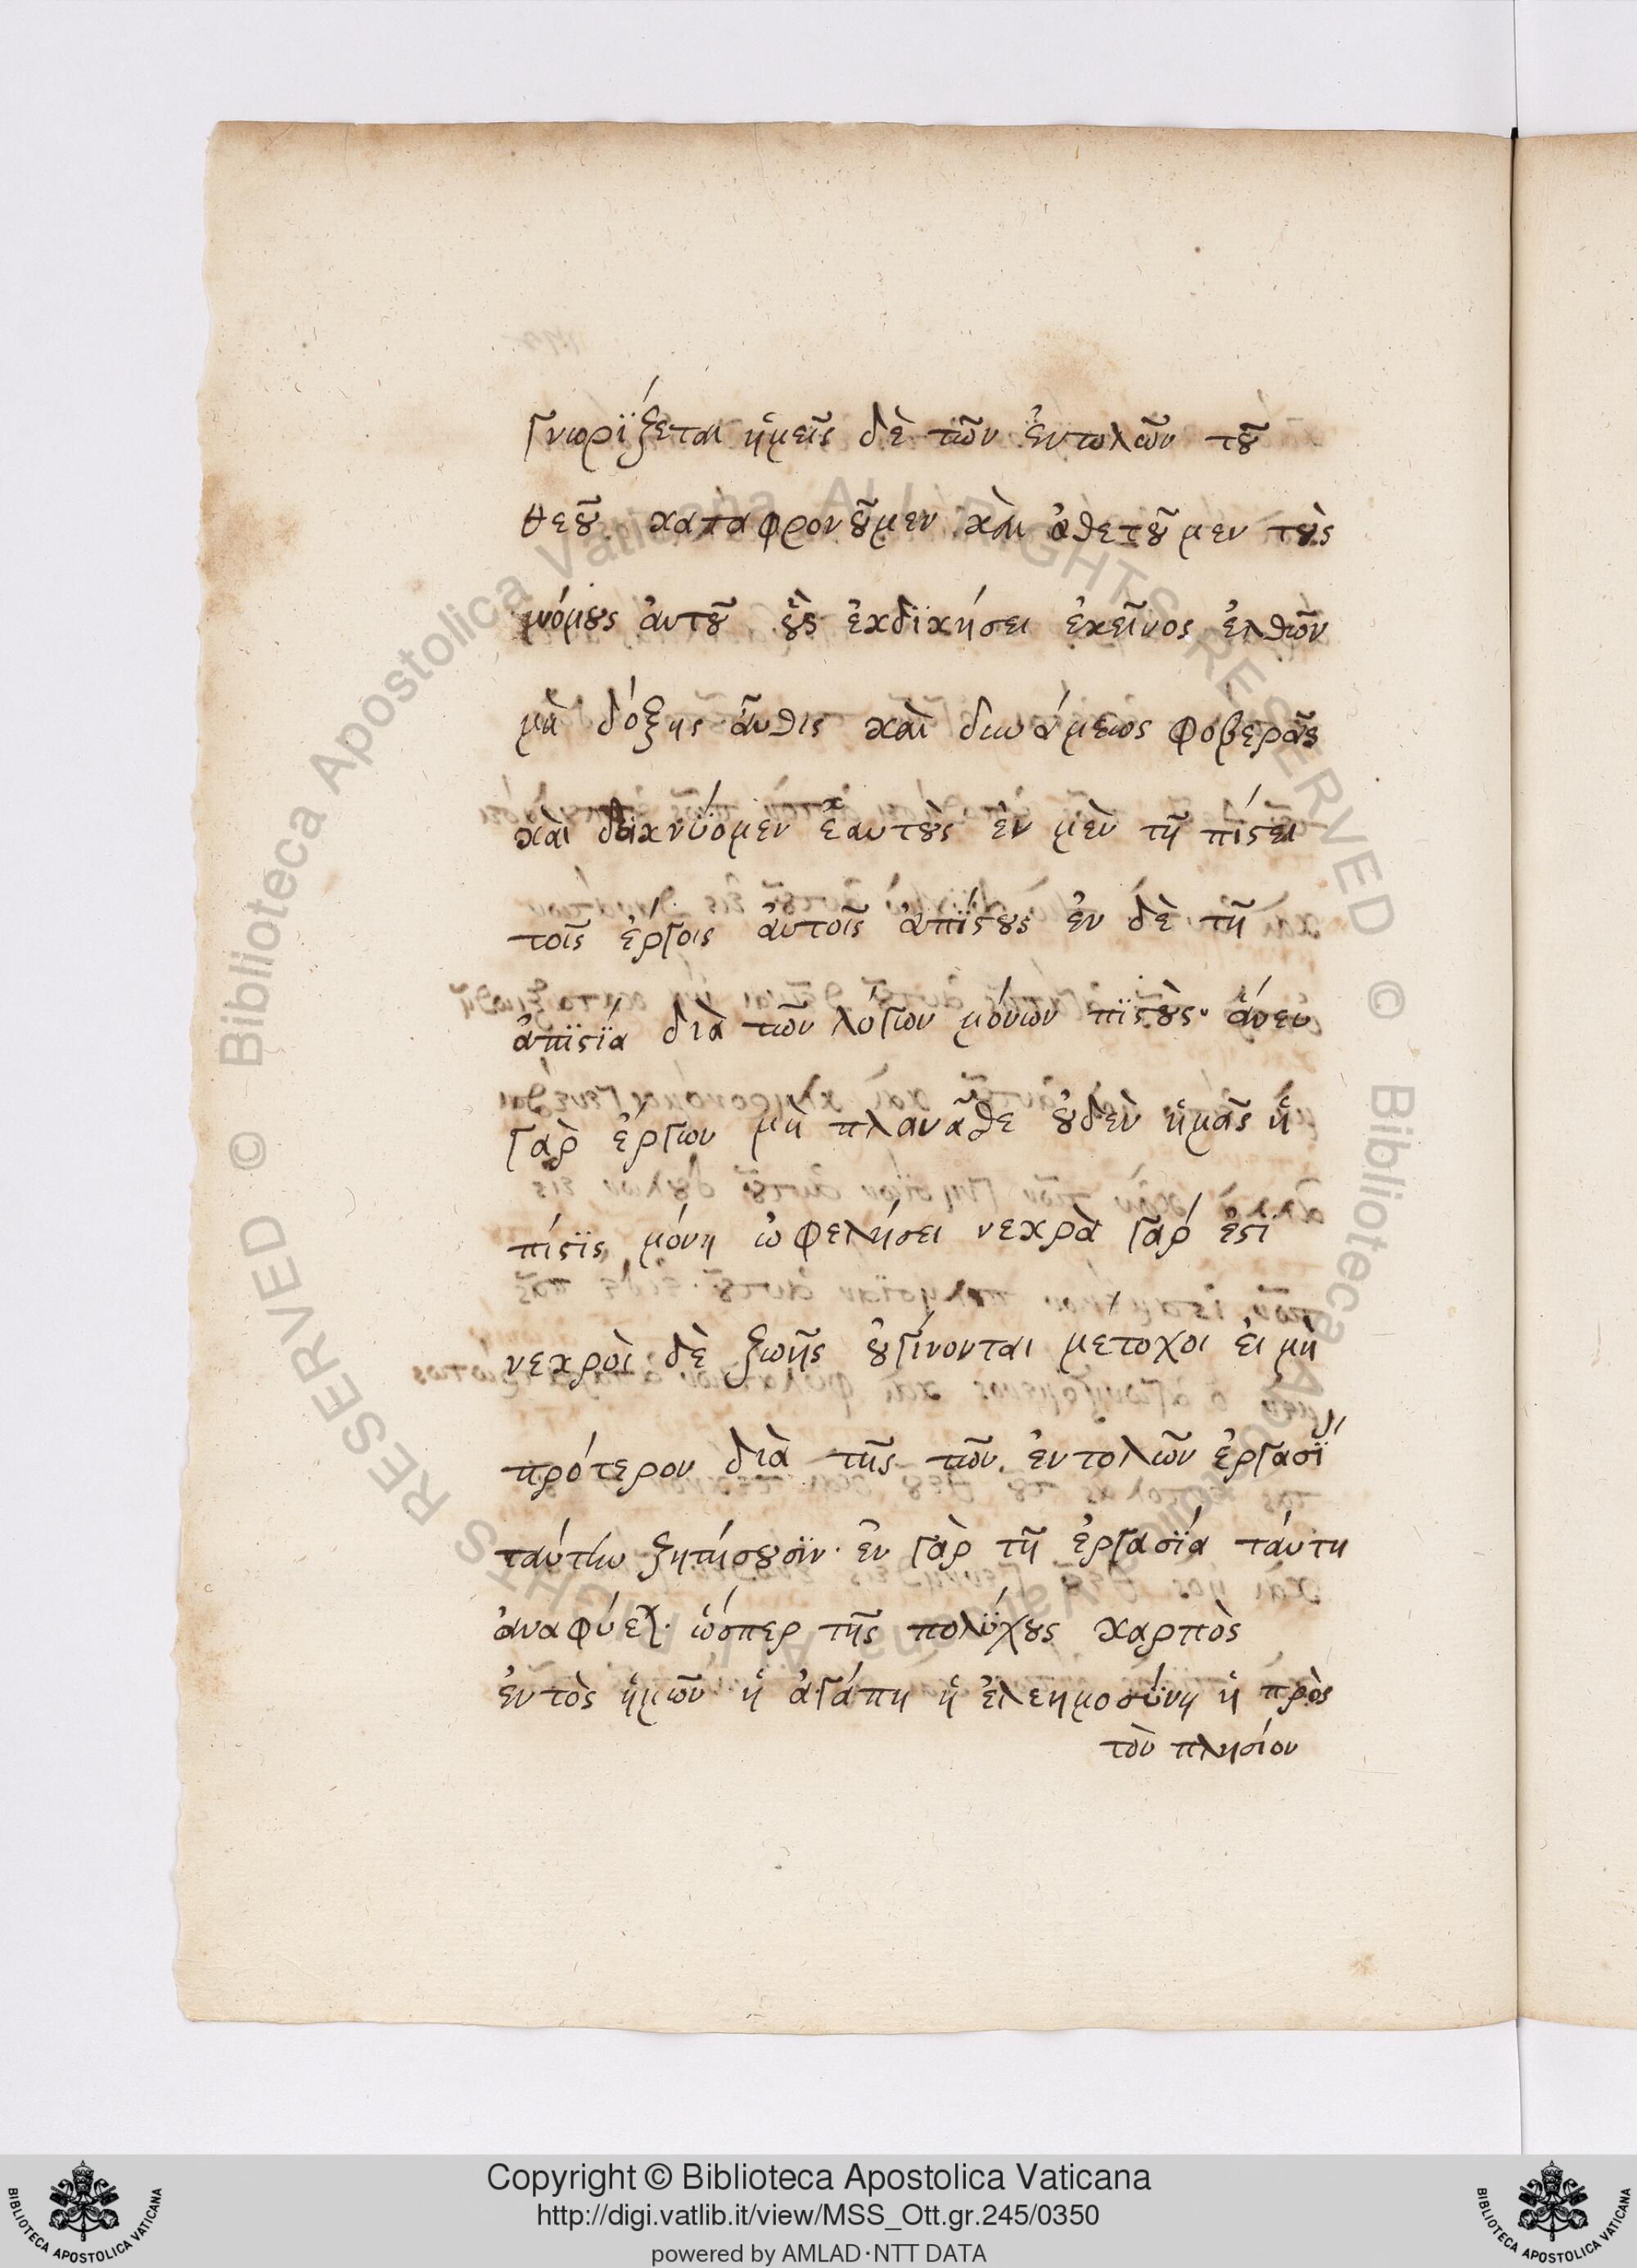 γνωρίζεται ἡμεῖς δὲ τῶν ἐντωλῶν τοῦ
θεοῦ καταφρονοῦμεν καὶ ἀθετοῦμεν τοὺς
νόμους ἀυτοῦ οὓς ἐκδϊκήσει ἐκεῖνος ἐλθῶν
μὴ δόξης ἆυθις καὶ δυνάμεως φοβερᾶς
καὶ δεικνύομεν ἑαυτοὺς ἐν μὲν τῆ πίστει
τοῖς ἐργοις ἀυτοῖς ἀπίϊστους ἐν δὲ τῆ
ἀπϊστϊά διὰ τῶν λόγων μόνων πϊστοὺς· ἄνευ
γὰρ ἐργων μὴ πλανᾶσθε οὐδὲν ἡμᾶς ἡ
πίστϊς μόνη ὠφελήσει νεκρὰ γάρ ἐστϊ
νεκροὶ δὲ ζωῆς οὐ γίνονται μετοχοι ἐι μὴ
πρότερον διὰ τῆς τῶν ἐντολῶν ἐργασϊ
ταύτην ζητήσουσϊν· ἐν γὰρ τῆ ἐργασϊά τάυτη
ἀναφύεται· ὡσπερ τῆς πολύχους καρπὸς
ἐντὸς ἡμῶν ἡ ἀγάπη ἡ ἐλεημοσύνη ἡ πρὸς
τὸν πλησίον
Copyright © Biblioteca Apostolica Vaticana
http://digi.vatlib.it/view/MSS_Ott.gr.245/0350
powered by AMLAD·NTT DATA
BIBLIOTECA APOSTOLICA VATICANA
BIBLIOTECA APOSTOLICA VATICANA
© Biblioteca Apostolica Vaticana ALL RIGHTS RESERVED © Biblioteca Apostolica Vaticana ALL RIGHTS RESERVED